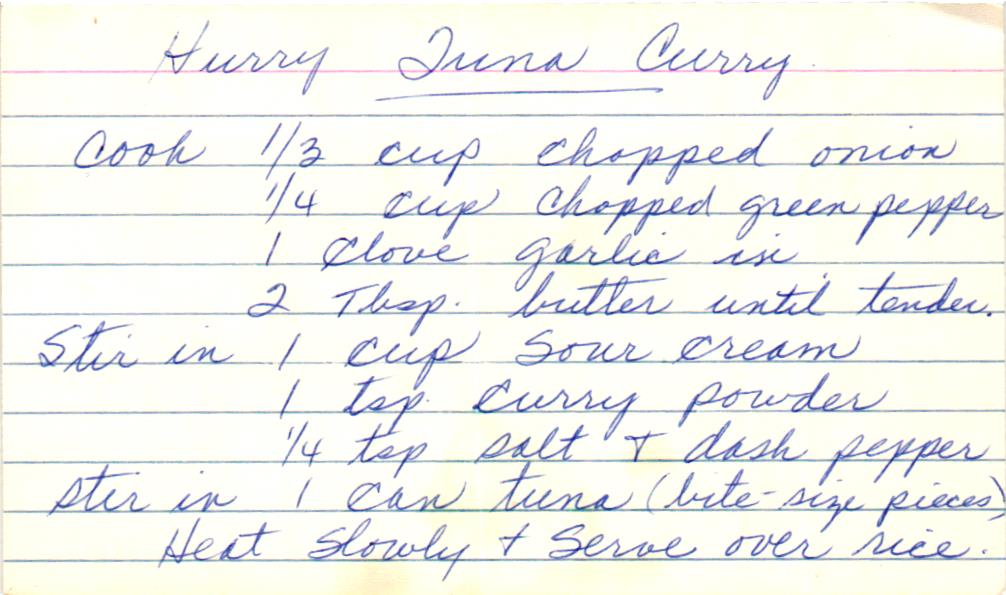 Hurry Tuna Curry
Cook 1/3 cup chopped onion
1/4 cup chopped green pepper
1 clove garlic in
2 Tbsp. butter until tender.
Stir in 1 cup sour cream
1 tsp. curry powder
1/4 tsp salt + dash pepper
stir in 1 can tuna (bite-size pieces)
Heat slowly + serve over rice.